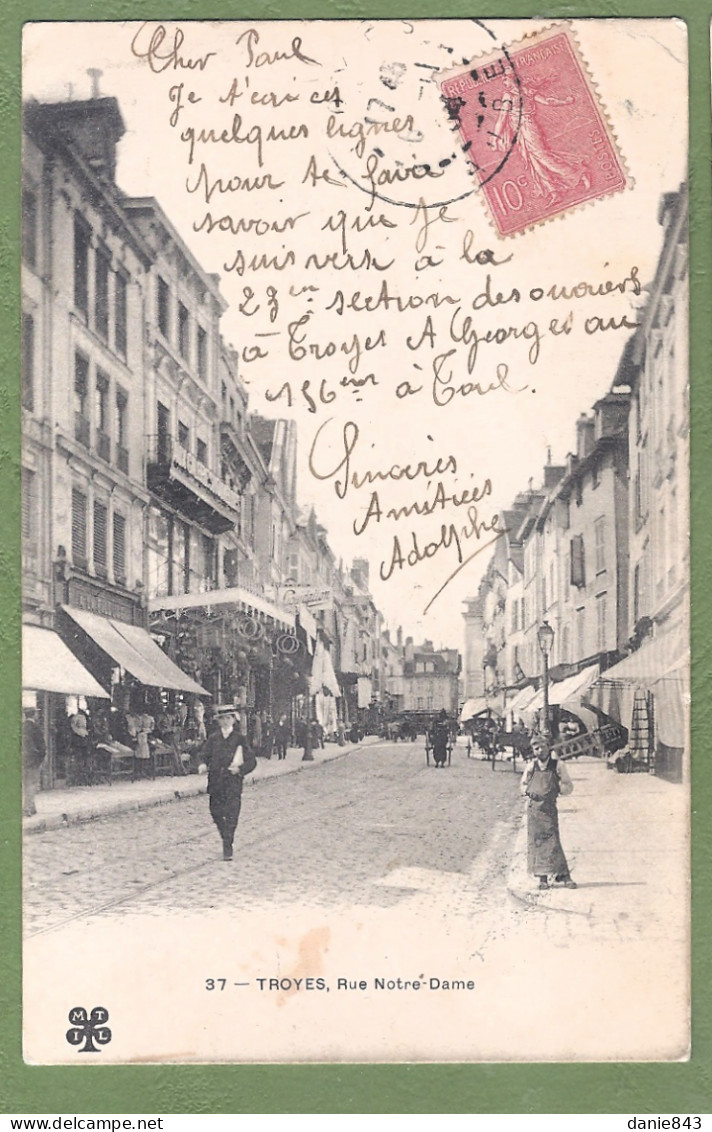 Cher Paul
Je t'écri ces
quelques lignes
pour te faire
savoir que je
suis versé à la
23em section des ouvriers
à Troyes A Georges au
156em à Toul.
Sincères
Amitiées
Adolphe
REPUBLIQUE FRANÇAISE
POSTES
10c
37 — TROYES, Rue Notre-Dame
M T
I L
danie843